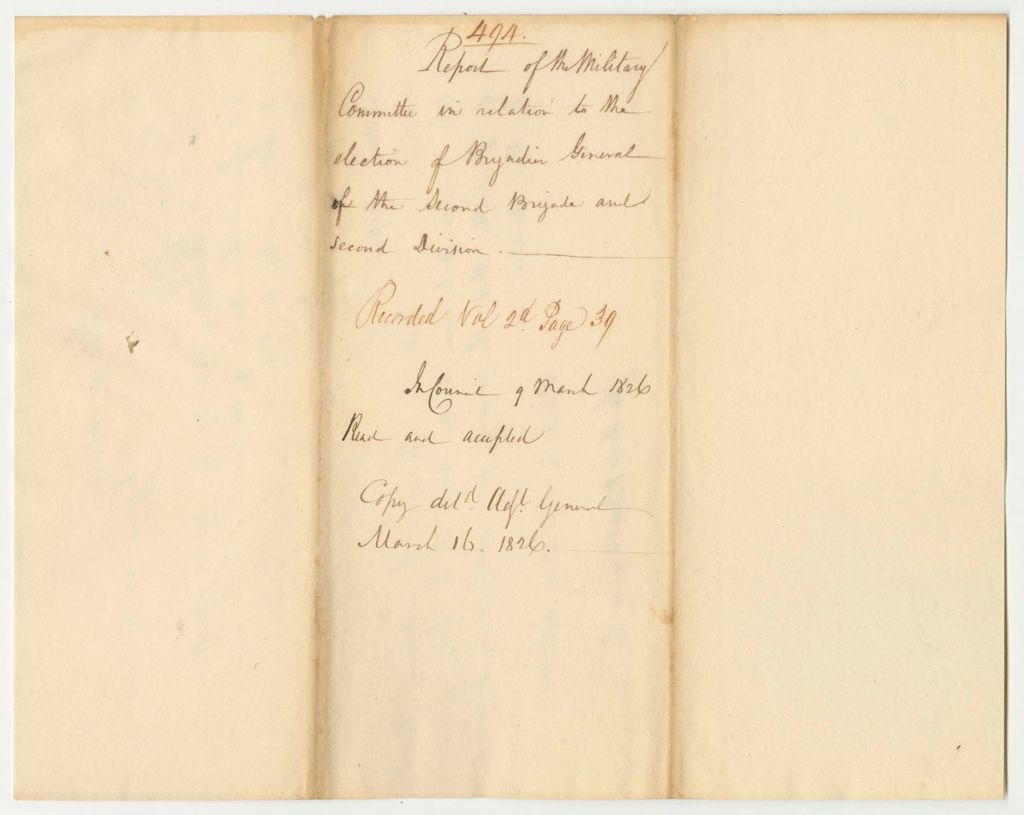 494.
Report of the Military
Committee in relation to the
election of Brigadier General
of the Second Brigade and
second Division.
Recorded Vol 2d. Page 39
In Council 9 March 1826
Read and accepted
Copy deld. Adjt. General
March 16. 1826.